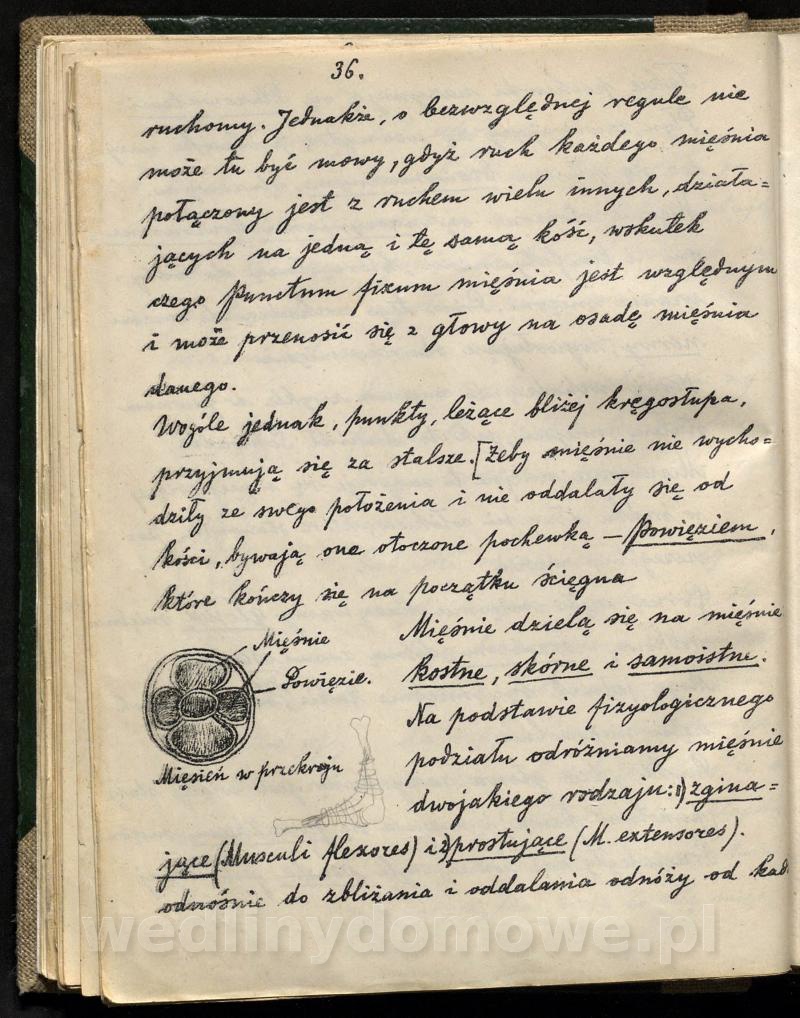 36.
ruchomy. Jednakże, o bezwzględnej regule nie
może tu być mowy, gdyż ruch każdego mięśnia
połączony jest z ruchem wielu innych, działa=
jących na jedną i tę samą kość, wskutek
czego Punctum fixum mięśnia jest względnym
i może przenosić się z głowy na osadę mięśnia
danego.
Wogóle jednak, punkty, leżące bliżej kręgosłupa,
przyjmują się za stalsze. [Żeby mięśnie nie wycho=
dziły ze swego położenia i nie oddalały się od
kości, bywają one otoczone pochewką – Powięziem,
które kończy się na początku ścięgna
Mięśnie
Powięzie.
Mięsień w przekroju
Mięśnie dzielą się na mięśnie
kostne, skórne i samoistne.
Na podstawie fizyologicznego
podziału odróżniamy mięśnie
dwojakiego rodzaju: 1) zgina=
jące (Musculi flexores) i 2) prostujące (M. extensores).
odnośnie do zbliżania i oddalania odnóży od kad
wedlinydomowe.pl